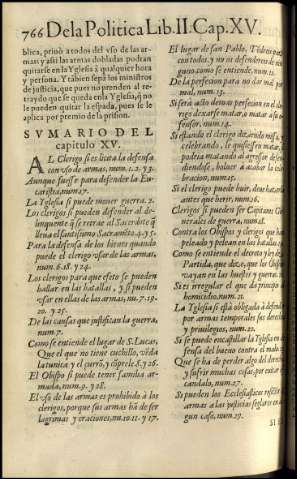 766 De la Politica Lib.II.Cap.XV.
blica, priuò a todos del vso de las ar-
mas: y assi las armas dobladas podran
quitarse en la Yglesia à qualquier hora
y persona. Y tãbien sepã los ministros
de justicia, que pues no prenden al re-
traydo que se queda en la Yglesia, q̃ no
le pueden quitar la espada, pues se le
aplica por premio de la prision.
SVMARIO DEL
capitulo XV.
AL Clerigo si es licita la defensa
con vso de armas, num. 1. 2. y 3.
Aunque fuesse para defender la Eu-
caristia, num. 27.
La Yglesia si puede mouer guerra. 2.
Los clerigos si pueden defender al de-
linquente q̃ se retrae al Sacerdote q̃
lleua el santissimo Sacramẽto. 4. y 5.
Para la defensa de los bienes quando
puede el clerigo vsar de las armas,
num. 6. 18. y 24.
Los clerigos para que efeto se pueden
hallar en las batallas, y si pueden
vsar en ellas de las armas, nu. 7. 19.
20. y 25.
De las causas que justifican la guerra,
num. 7.
Como se entiende el lugar de S. Lucas,
Que el que no tiene cuchillo, vẽda
la tunica y el curro, y cõprele. 8. y 26.
El Obispo si puede tener familia ar-
mada, num. 9. y 28.
El vso de las armas es prohibido à los
clerigos, porque sus armas hã de ser
lagrimas y oraciones, nu. 10. 11. y 17.
El lugar de san Pablo. Y tãbien paz
con todos, y no os defenderos de nin-
guno como se entiende, num. 12.
De la perfeccion para no dar mal por
mal, num. 13.
Si serà acto de mas perfeccion en el cle-
rigo dexarse matar, o matar à su a-
gressor, num. 13.
Si estando el clerigo diziendo missa, y
celebrando, le quisiessen matar,
podria matando al agressor de-
diendole, boluer a acabar la
celebracion,
Si el clerigo puede huir, deue hazerlo
antes que herir, num. 16.
Clerigos si pueden ser Capitanes Ge-
nerales de guerra, num. 18.
Contra los Obispos y clerigos que han
peleado y pelean en las batallas,
Como se entiende el derecho y ley de
Partida, que dize, que los Obispos
vayan en las huestes y guerras.
Si es irregular el que da principio al
homicidio, num. 21.
La Yglesia si està obligada à defender
por armas temporales sus derechos
y priuilegios, num. 22.
Si se puede encastillar la Yglesia en de-
fensa del bueno contra el malo.
Que se ha de perder algo del derecho
y sufrir muchas cosas, por euitar es-
candalo, num. 27.
Si pueden los Eclesiasticos resistir cõ
armas a las justicias seglares en al-
gun caso, num. 29.
SI EL